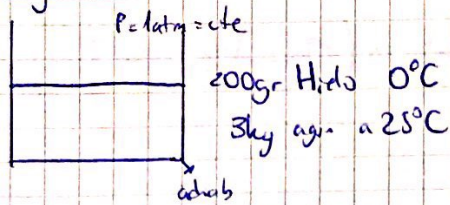 P = 1atm = cte
200gr Hielo 0°C
3kg agua a 25°C
adiab